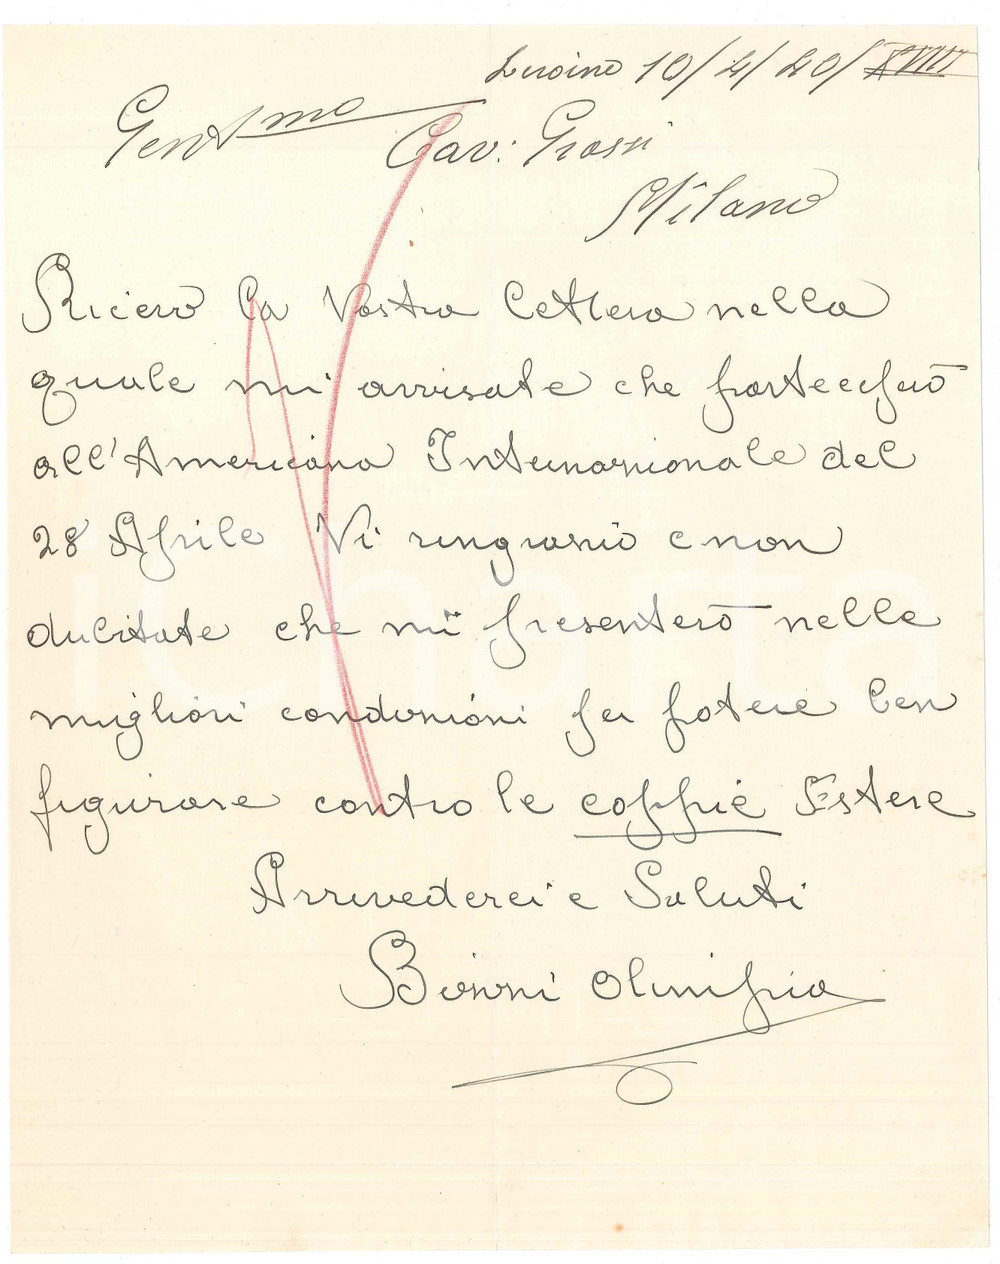 10/4/40/XVIII
Gent.mo Cav: Grossi
Milano
Ricevo la Vostra lettera nella
quale mi avvisate che parteciperò
all'Americana Internazionale del
28 Aprile Vi ringrazio e non
dubitate che mi presenterò nelle
migliori condizioni per potere ben
figurare contro le coppie Estere
Arrivederci e Saluti
Bizzi Olimpio
iCharta